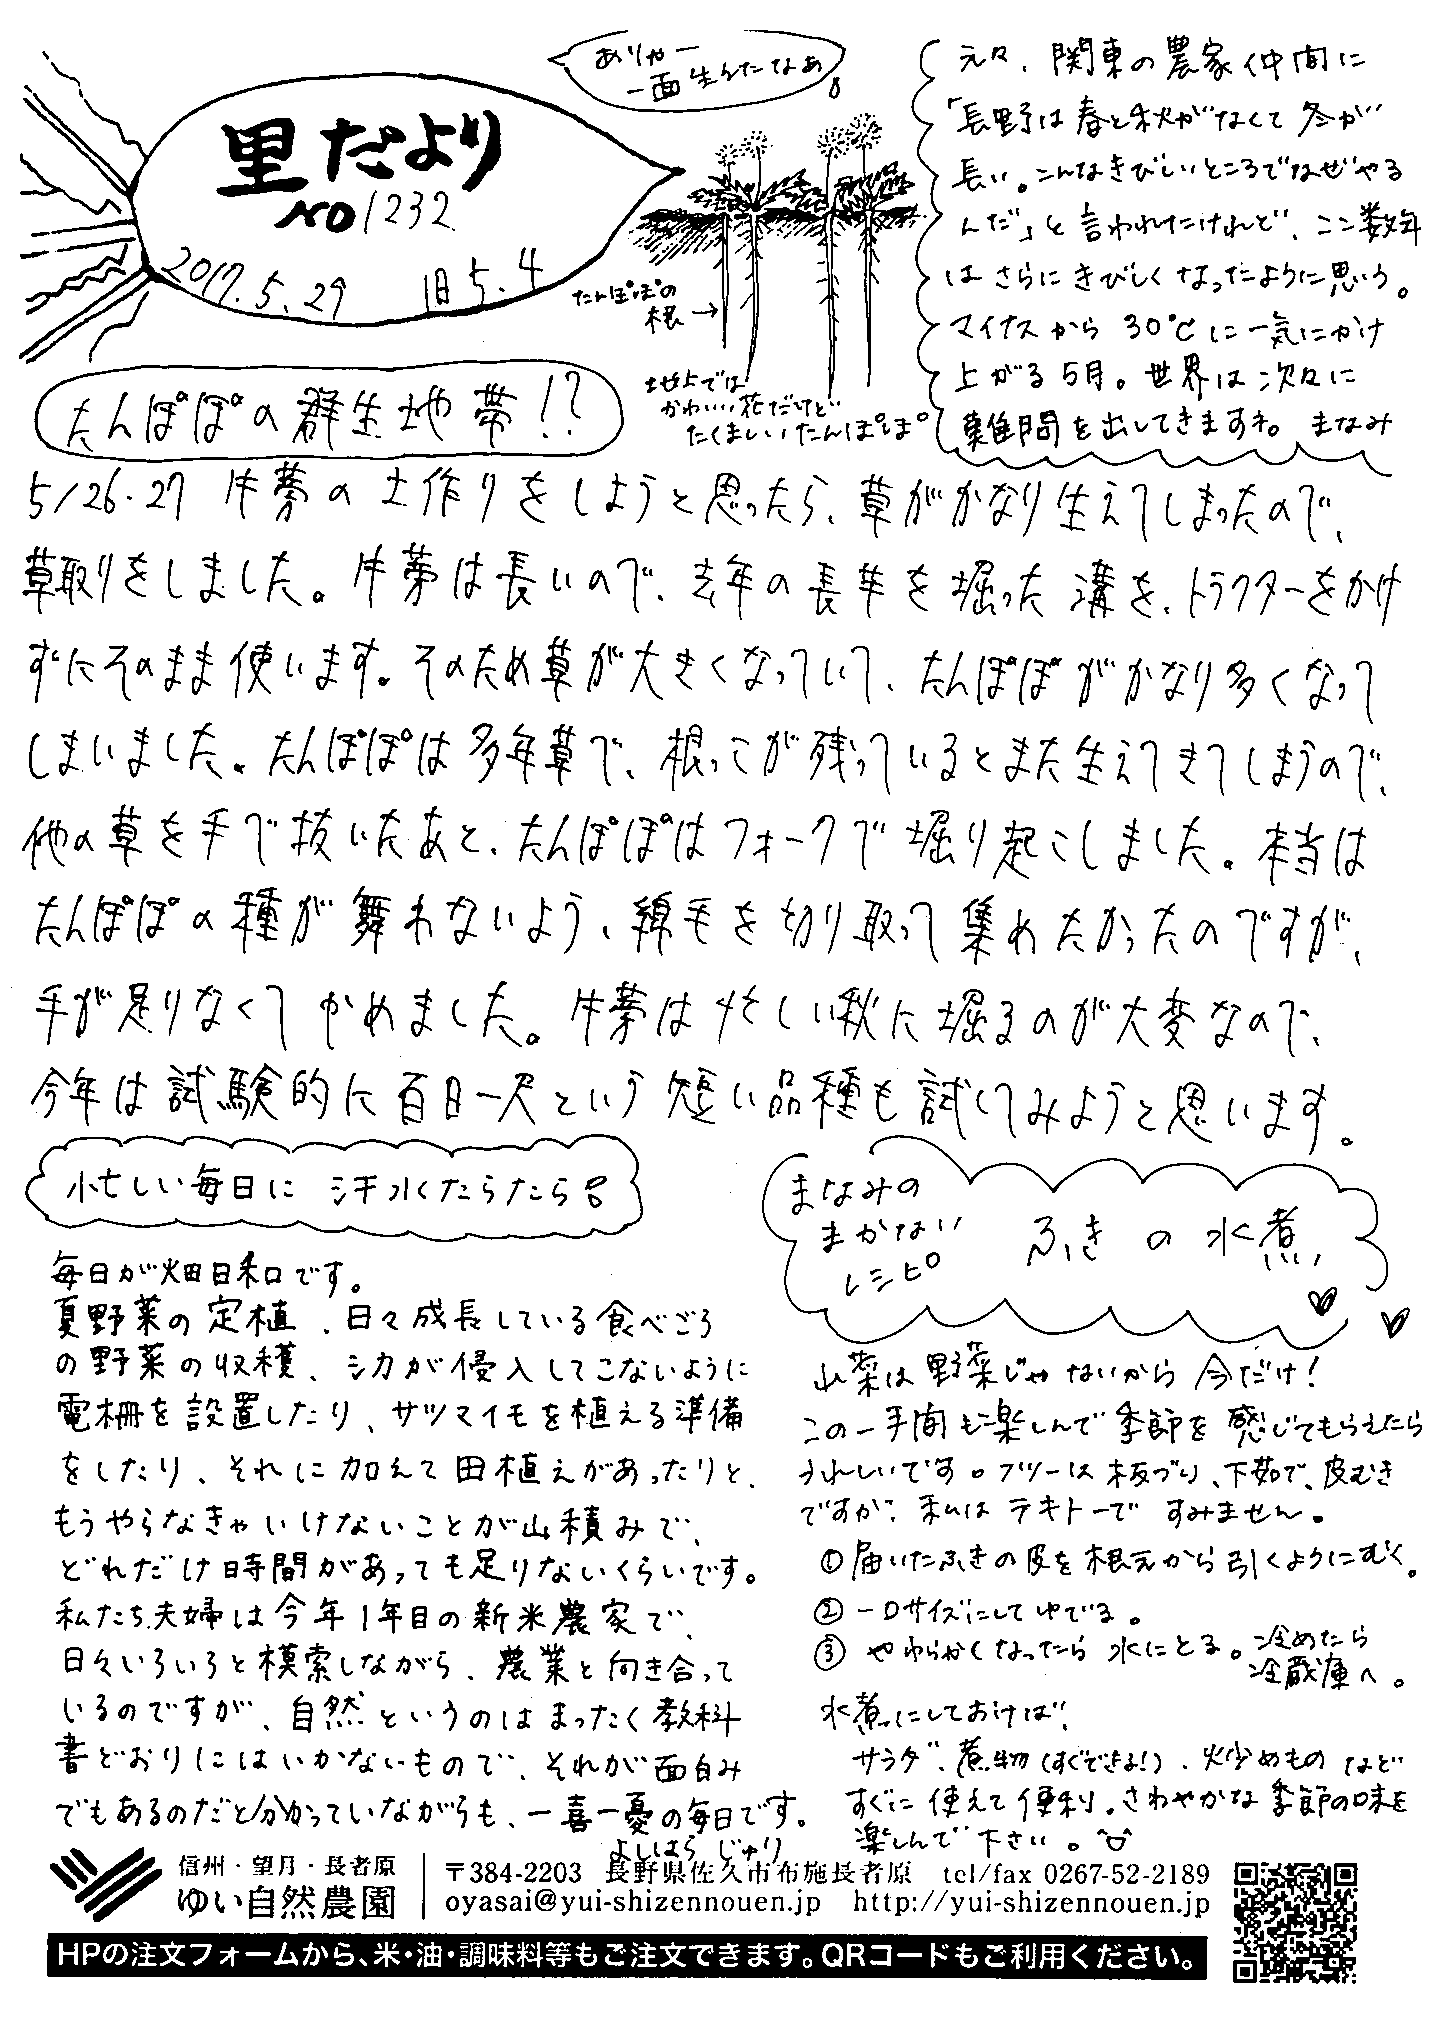 里だより
NO1232
2017.5.29 旧5.4
ありゃー
一面生えたなあ
たんぽぽの
根→
地上では
かわいい花だけど
たくましいたんぽぽ
元々、関東の農家仲間に
「長野は春と秋がなくて冬が
長い。こんなきびしいところでなぜやる
んだ」と言われたけれど、ここ数年
はさらにきびしくなったように思う。
マイナスから30℃に一気にかけ
上がる5月。世界は次々に
難問を出してきますね。まなみ
たんぽぽの群生地帯!?
5/26・27 牛蒡の土作りをしようと思ったら、草がかなり生えてしまったので、
草取りをしました。牛蒡は長いので、去年の長芋を堀った溝を、トラクターをかけ
ずにそのまま使います。そのため草が大きくなっていて、たんぽぽがかなり多くなって
しまいました。たんぽぽは多年草で、根っこが残っているとまた生えてきてしまうので、
他の草を手で抜いたあと、たんぽぽはフォークで堀り起こしました。本当は
たんぽぽの種が舞わないよう、綿毛を切り取って集めたかったのですが、
手が足りなくてやめました。牛蒡は忙しい秋に堀るのが大変なので、
今年は試験的に百日一尺という短い品種も試してみようと思います。
忙しい毎日に 汗水たらたら!
毎日が畑日和です。
夏野菜の定植、日々成長している食べごろ
の野菜の収穫、シカが侵入してこないように
電柵を設置したり、サツマイモを植える準備
をしたり、それに加えて田植えがあったりと、
もうやらなきゃいけないことが山積みで、
どれだけ時間があっても足りないくらいです。
私たち夫婦は今年1年目の新米農家で、
日々いろいろと模索しながら、農業と向き合って
いるのですが、自然というのはまったく教科
書どおりにはいかないもので、それが面白み
でもあるのだと分かっていながらも、一喜一憂の毎日です。
よしはら じゅり
まなみの
まかない
レシピ
ふきの水煮
山菜は野菜じゃないから今だけ!
この一手間も楽しんで季節を感じてもらえたら
うれしいです。フツーは板づり、下茹で、皮むき
ですが、私はテキトーですみません。
①届いたふきの皮を根元から引くようにむく。
②一口サイズにしてゆでる。
③やわらかくなったら水にとる。冷めたら
冷蔵庫へ。
水煮にしておけば、
サラダ、煮物(すぐできる!)、炒めものなど
すぐに使えて便利。さわやかな季節の味を
楽しんで下さい。
信州・望月・長者原
ゆい自然農園
〒384-2203 長野県佐久市布施長者原 tel/fax 0267-52-2189
oyasai@yui-shizennouen.jp http://yui-shizennouen.jp
HPの注文フォームから、米・油・調味料等もご注文できます。QRコードもご利用ください。